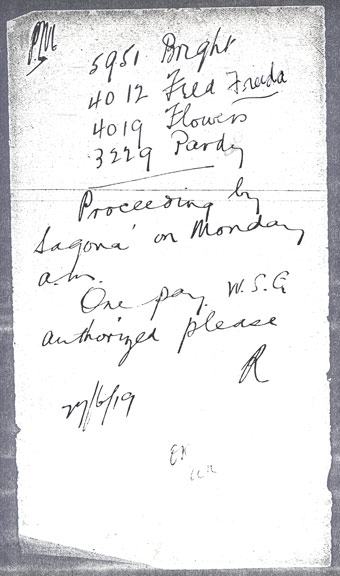 P.M.
5951 Bright
4012 Fred Frieda
4019 Flowers
3229 Pardy
Proceeding by
Sagona' on Monday
a.m.
One pay. W.S.G
authorized please
R
27/6/19